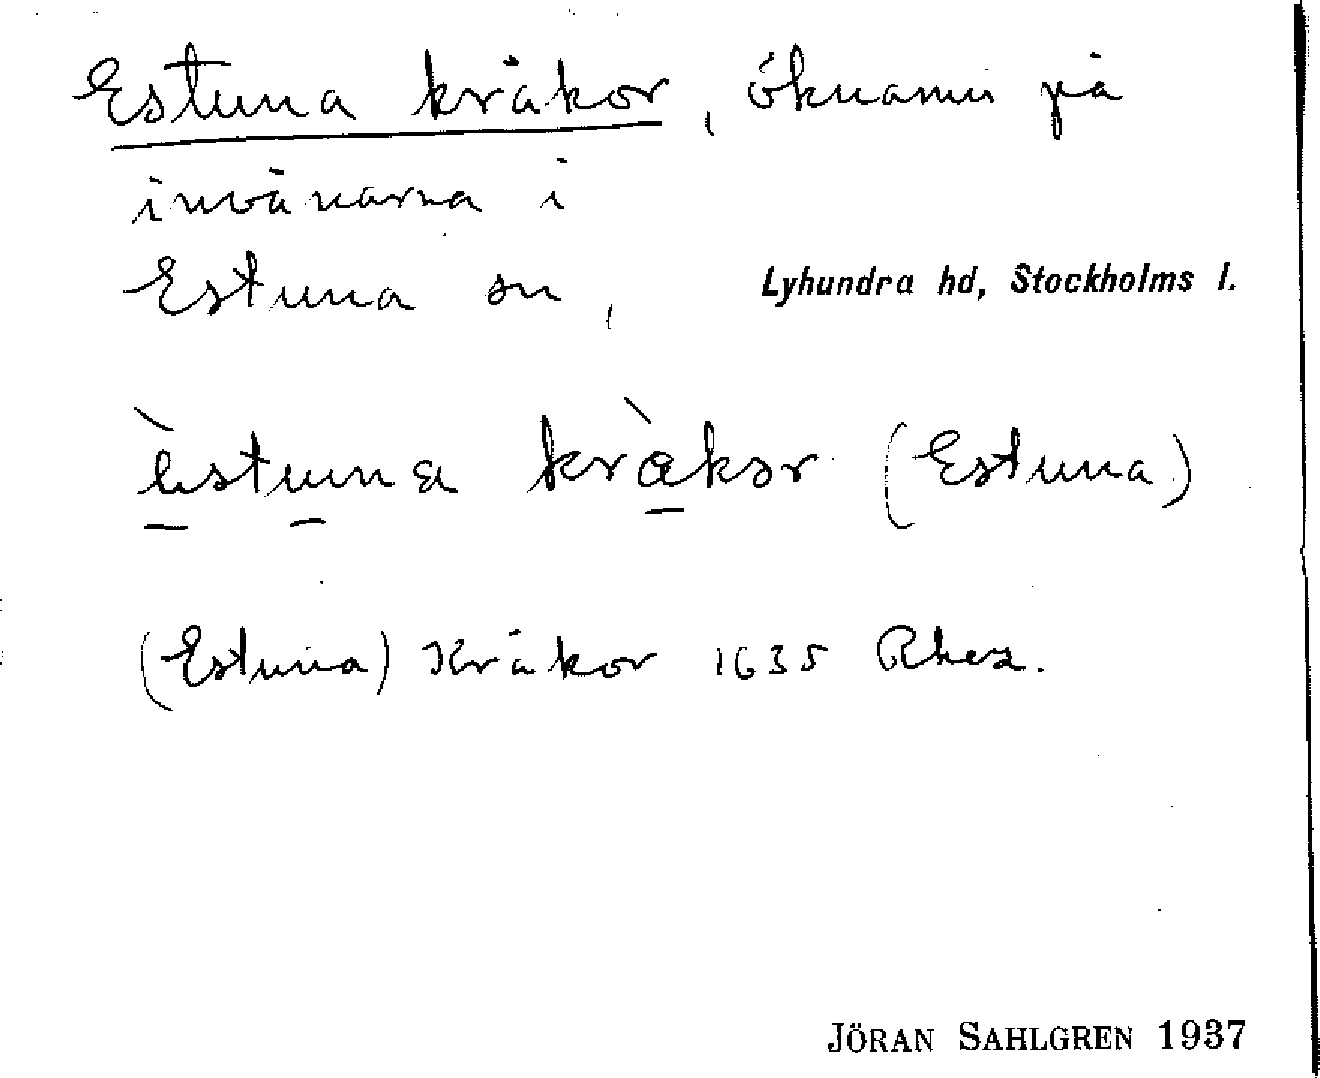 Estuna kråkor, öknamn på
invånarna i
Estuna sn, Lyhundra hd, Stockholms l.
èstuna kràkor (Estuna)
(Estuna) Kråkor 1635 Rhez.
JÖRAN SAHLGREN 1937